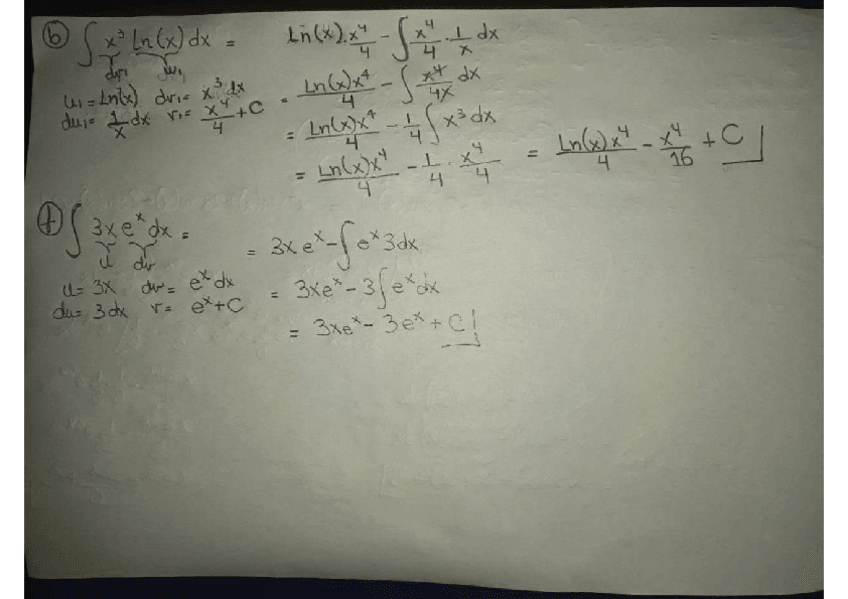 b ∫ x³ Ln(x) dx = Ln(x).x⁴/4 - ∫ x⁴/4 . 1/x dx
dv₁ u₁
u₁ = Ln(x) dv₁ = x³ dx = Ln(x)x⁴/4 - ∫ x⁴/4x dx
du₁ = 1/x dx v₁ = x⁴/4 + C
= Ln(x)x⁴/4 - 1/4 ∫ x³ dx
= Ln(x)x⁴/4 - 1/4 . x⁴/4 = Ln(x)x⁴/4 - x⁴/16 + C
f ∫ 3x eˣ dx = = 3x eˣ - ∫ eˣ 3dx
u dv
u = 3x dv = eˣ dx = 3xeˣ - 3∫ eˣ dx
du = 3 dx v = eˣ + C
= 3xeˣ - 3eˣ + C